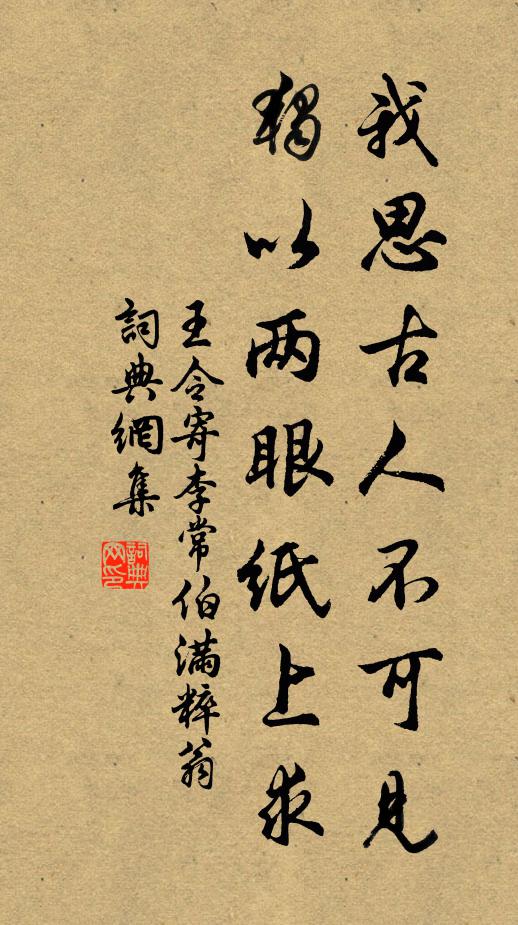 我思古人不可见
独以两眼纸上求
王令寄李常伯满粹翁
詞典網集
詞典网印